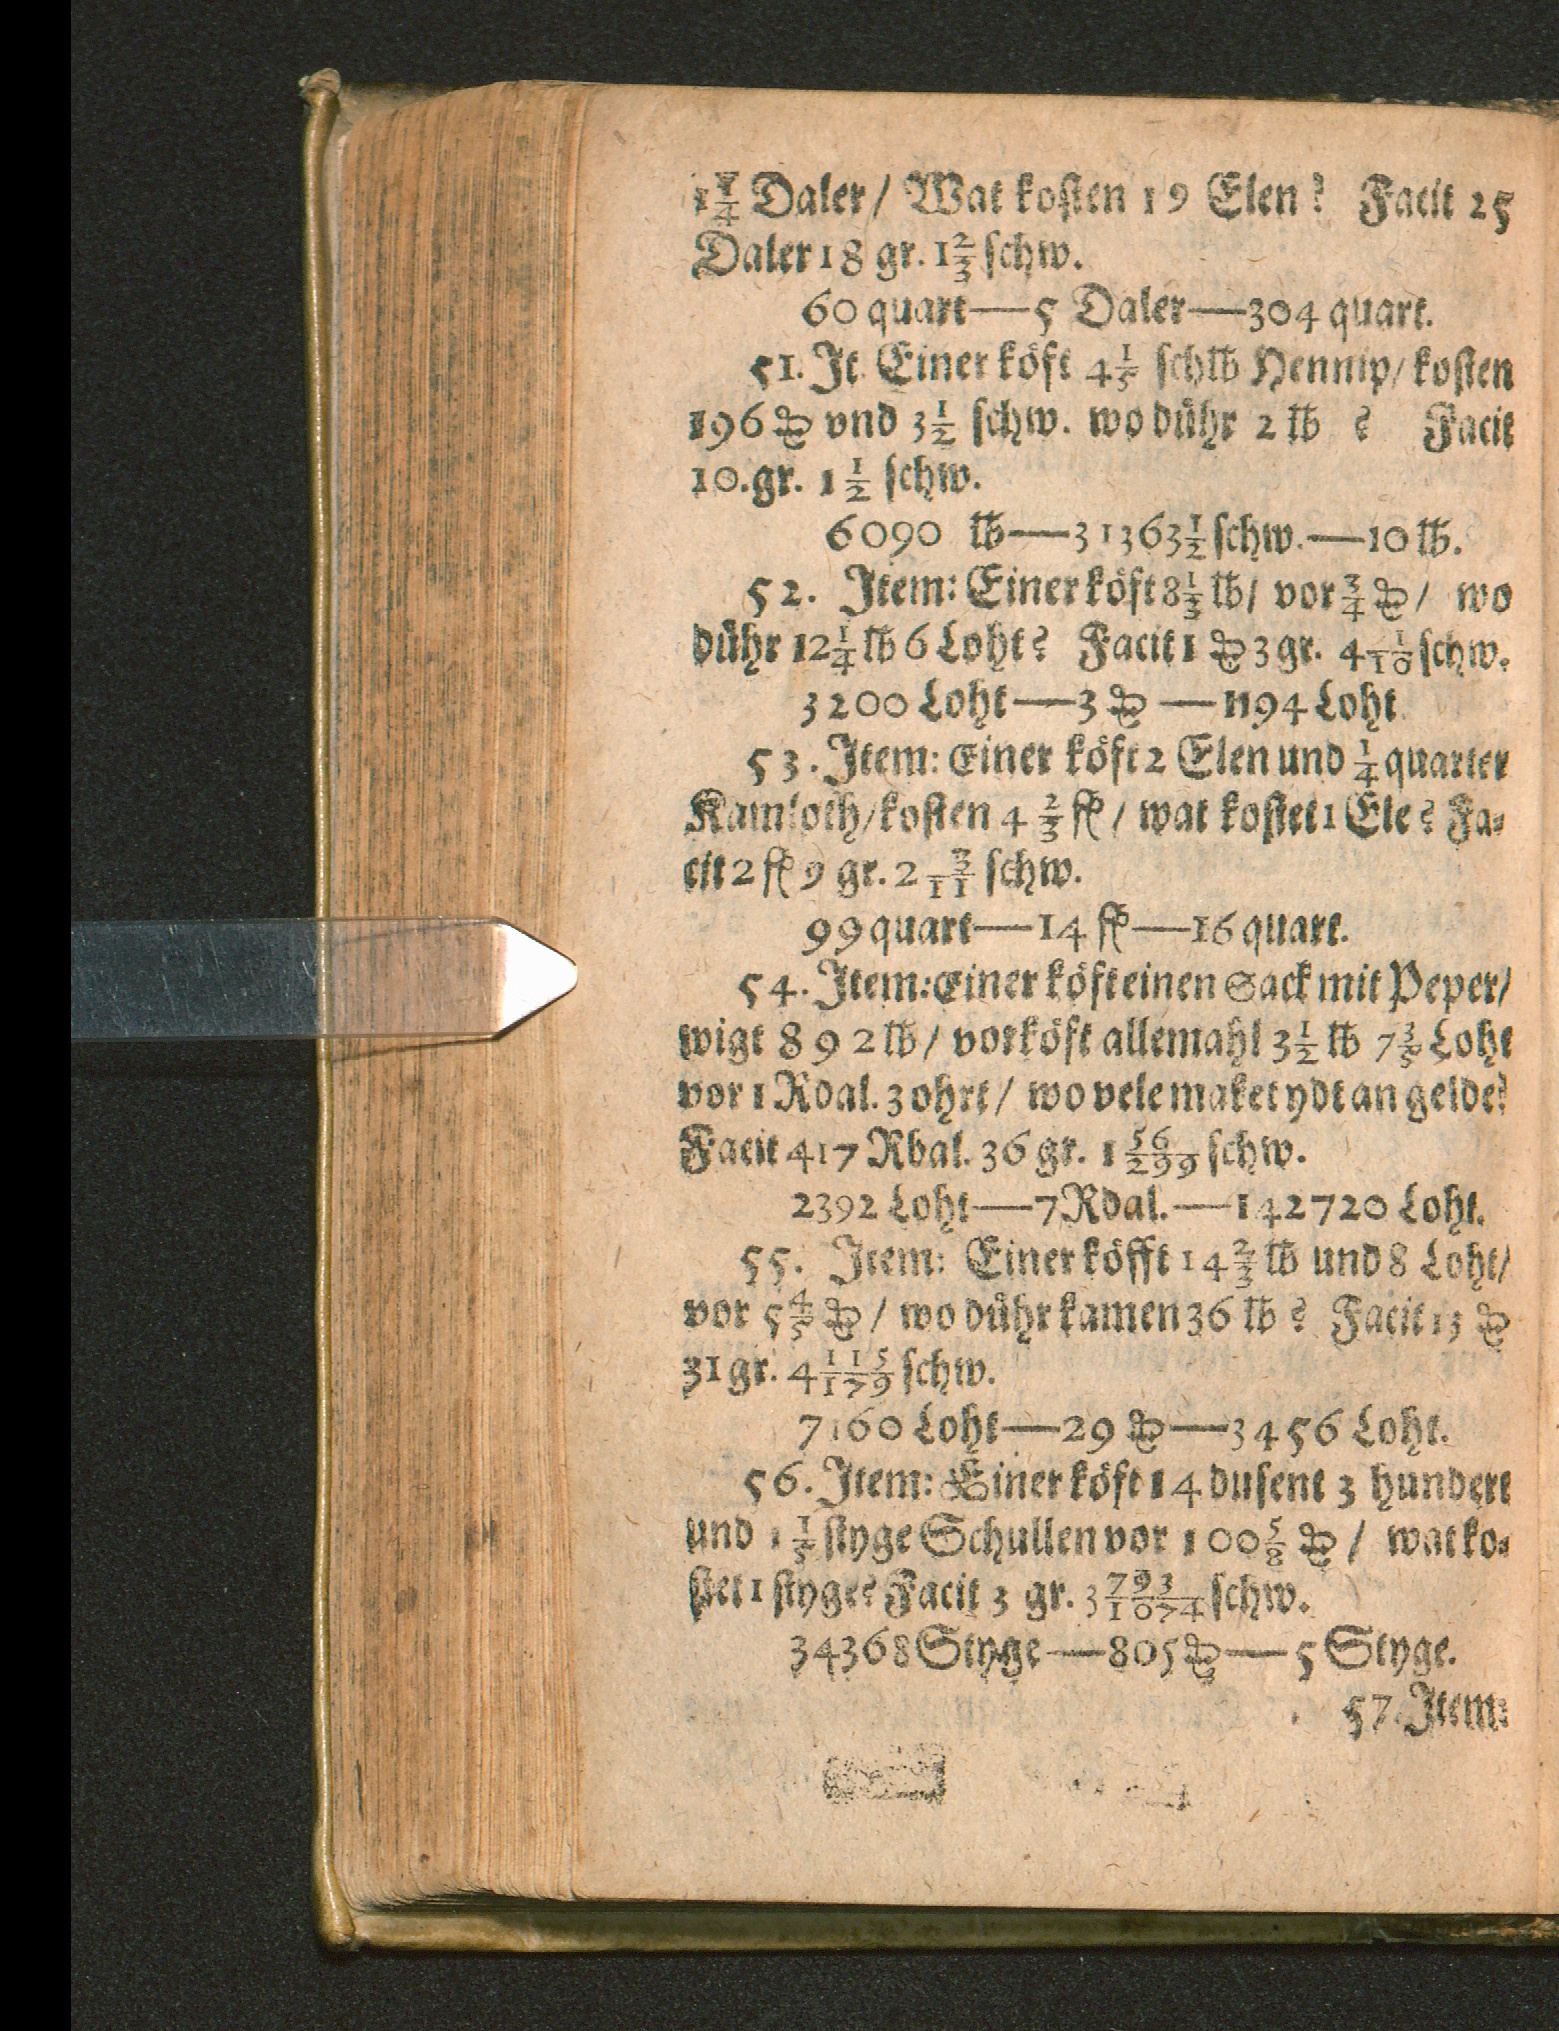 1 1/4 Daler / Wat koſten 19 Elen? Facit 25
Daler 18 gr. 1 2/3 ſchw.
60 quart — 5 Daler — 304 quart.
51. It. Einer köft 4 1/5 ſchlb Hennip / koſten
196 ₰ vnd 3 1/2 ſchw. wo dühr 2 lb ? Facit
10. gr. 1 1/2 ſchw.
6090 lb — 31363 1/2 ſchw. — 10 lb.
52. Item: Einer köft 8 1/3 lb / vor 3/4 ₰ / wo
dühr 12 1/4 lb 6 Loht? Facit 1 ₰ 3 gr. 4 1/10 ſchw.
3200 Loht — 3 ₰ — 1194 Loht
53. Item: Einer köft 2 Elen und 1/4 quarter
koſten 4 2/3 fl / wat koſtet 1 Ele? Fa-
cit 2 fl 9 gr. 2 3/11 ſchw.
99 quart — 14 fl — 16 quart.
54. Item: Einer köft einen Sack mit Peper /
wigt 892 lb / vorköft allemahl 3 1/2 lb 7 3/5 Loht
vor 1 Rdal. 3 ohrt / wo vele maket ydt an gelde?
Facit 417 Rdal. 36 gr. 1 56/299 ſchw.
2392 Loht — 7 Rdal. — 142720 Loht.
55. Item: Einer köfft 14 2/3 lb und 8 Loht /
vor 5 4/5 ₰ / wo dühr kamen 36 lb? Facit 13 ₰
31 gr. 4 115/179 ſchw.
7160 Loht — 29 ₰ — 3456 Loht.
56. Item: Einer köft 14 duſent 3 hundert
und 1 1/5 ſtyge Schullen vor 100 5/8 ₰ / wat ko-
ſtet 1 ſtyge? Facit 3 gr. 3 793/1074 ſchw.
34368 Styge — 805 ₰ — 5 Styge.
57. Item: